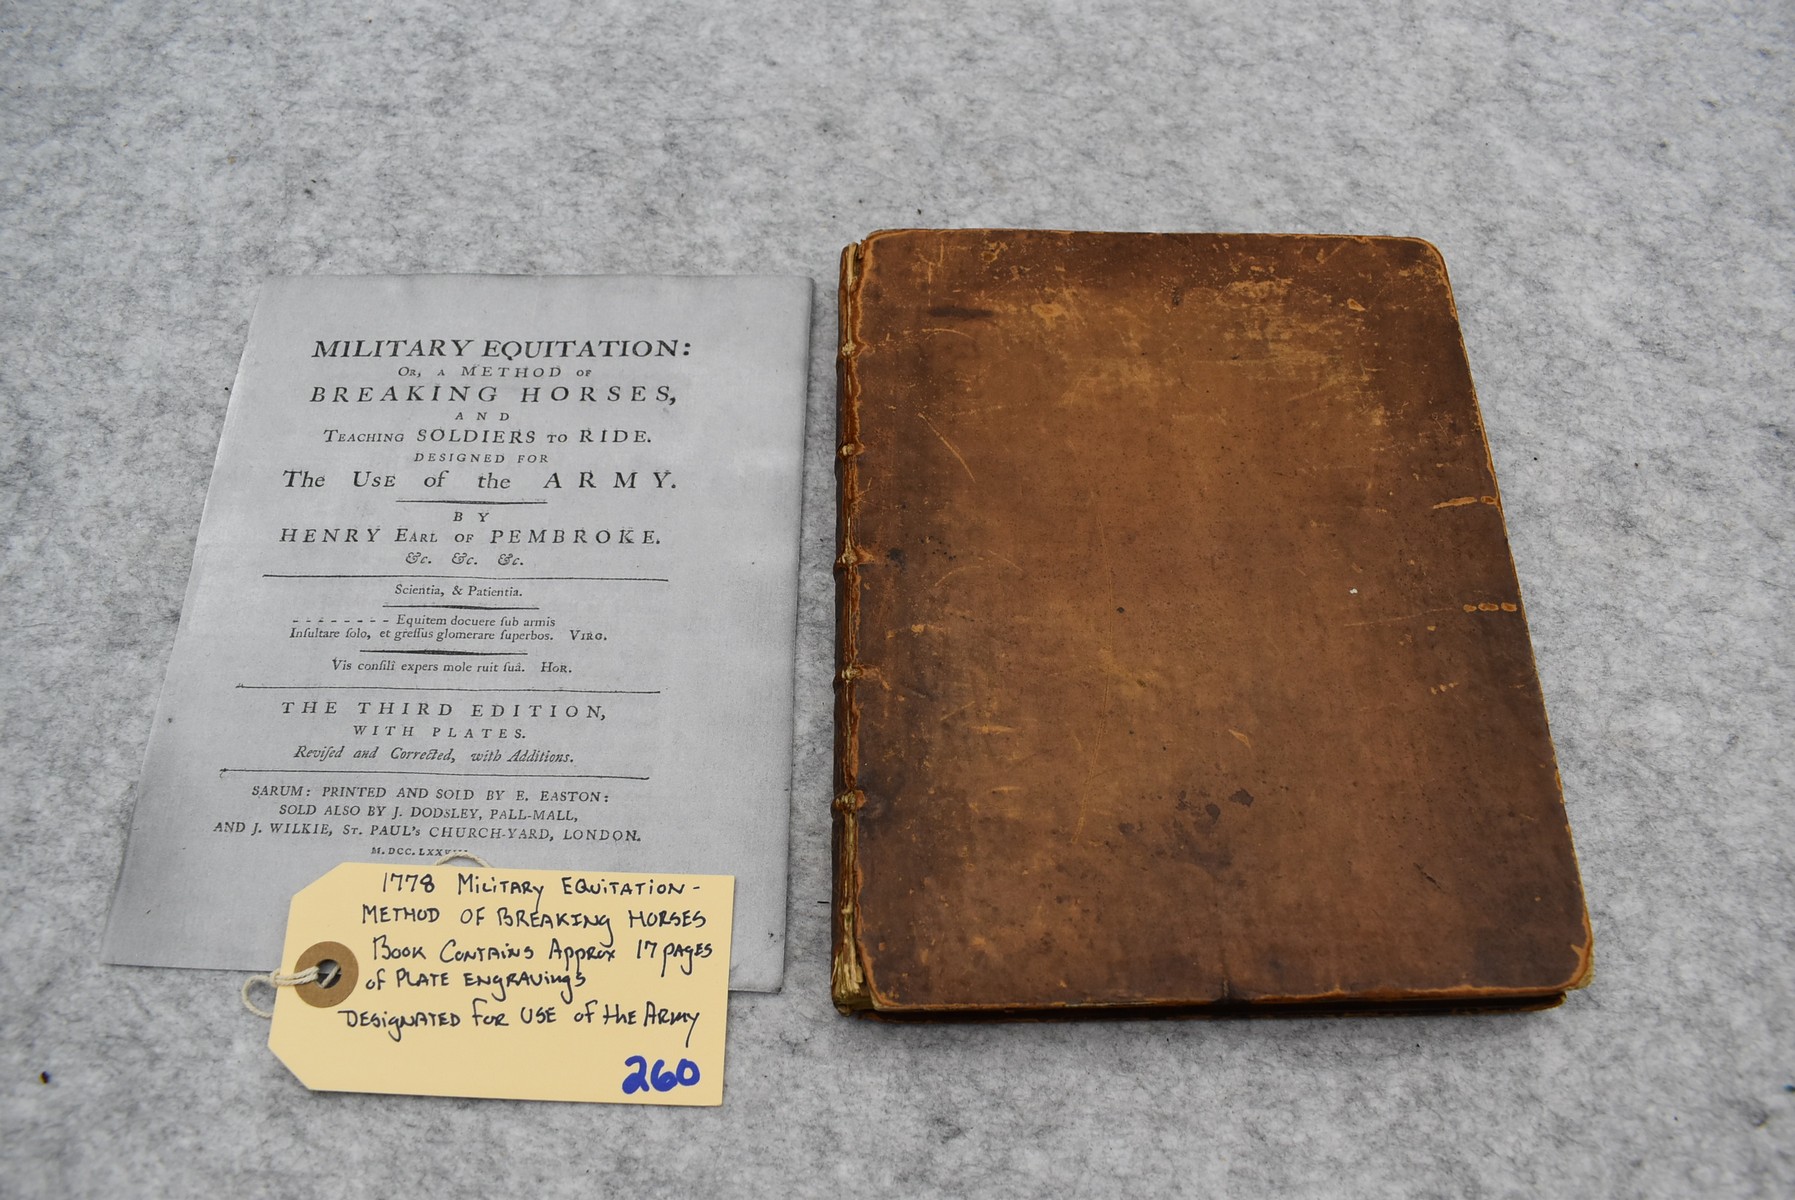 MILITARY EQUITATION:
Or, a METHOD of
BREAKING HORSES,
AND
Teaching SOLDIERS to RIDE.
DESIGNED FOR
The Use of the ARMY.
BY
HENRY Earl of PEMBROKE.
&c. &c. &c.
Scientia, & Patientia.
- - - - - - - - Equitem docuere ſub armis
Inſultare ſolo, et greſſus glomerare ſuperbos. Virg.
Vis conſilî expers mole ruit ſuâ. Hor.
THE THIRD EDITION,
WITH PLATES.
Reviſed and Corrected, with Additions.
SARUM: PRINTED AND SOLD BY E. EASTON:
SOLD ALSO BY J. DODSLEY, PALL-MALL,
AND J. WILKIE, St. PAUL's CHURCH-YARD, LONDON.
M.DCC.
1778 Military Equitation-
Method of Breaking Horses
Book Contains Approx 17 pages
of Plate Engravings
Designated for use of the Army
260